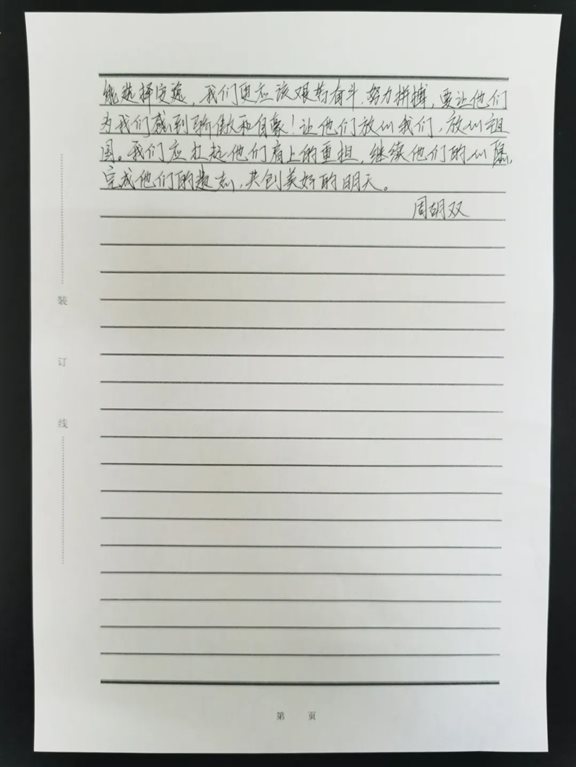 能选择安逸，我们更应该艰苦奋斗，努力拼搏，要让他们
为我们感到骄傲和自豪！让他们放心我们，放心祖
国。我们应扛起他们肩上的重担，继续他们的心愿，
完成他们的遗志，共创美好的明天。
周胡双
装
订
线
第 页